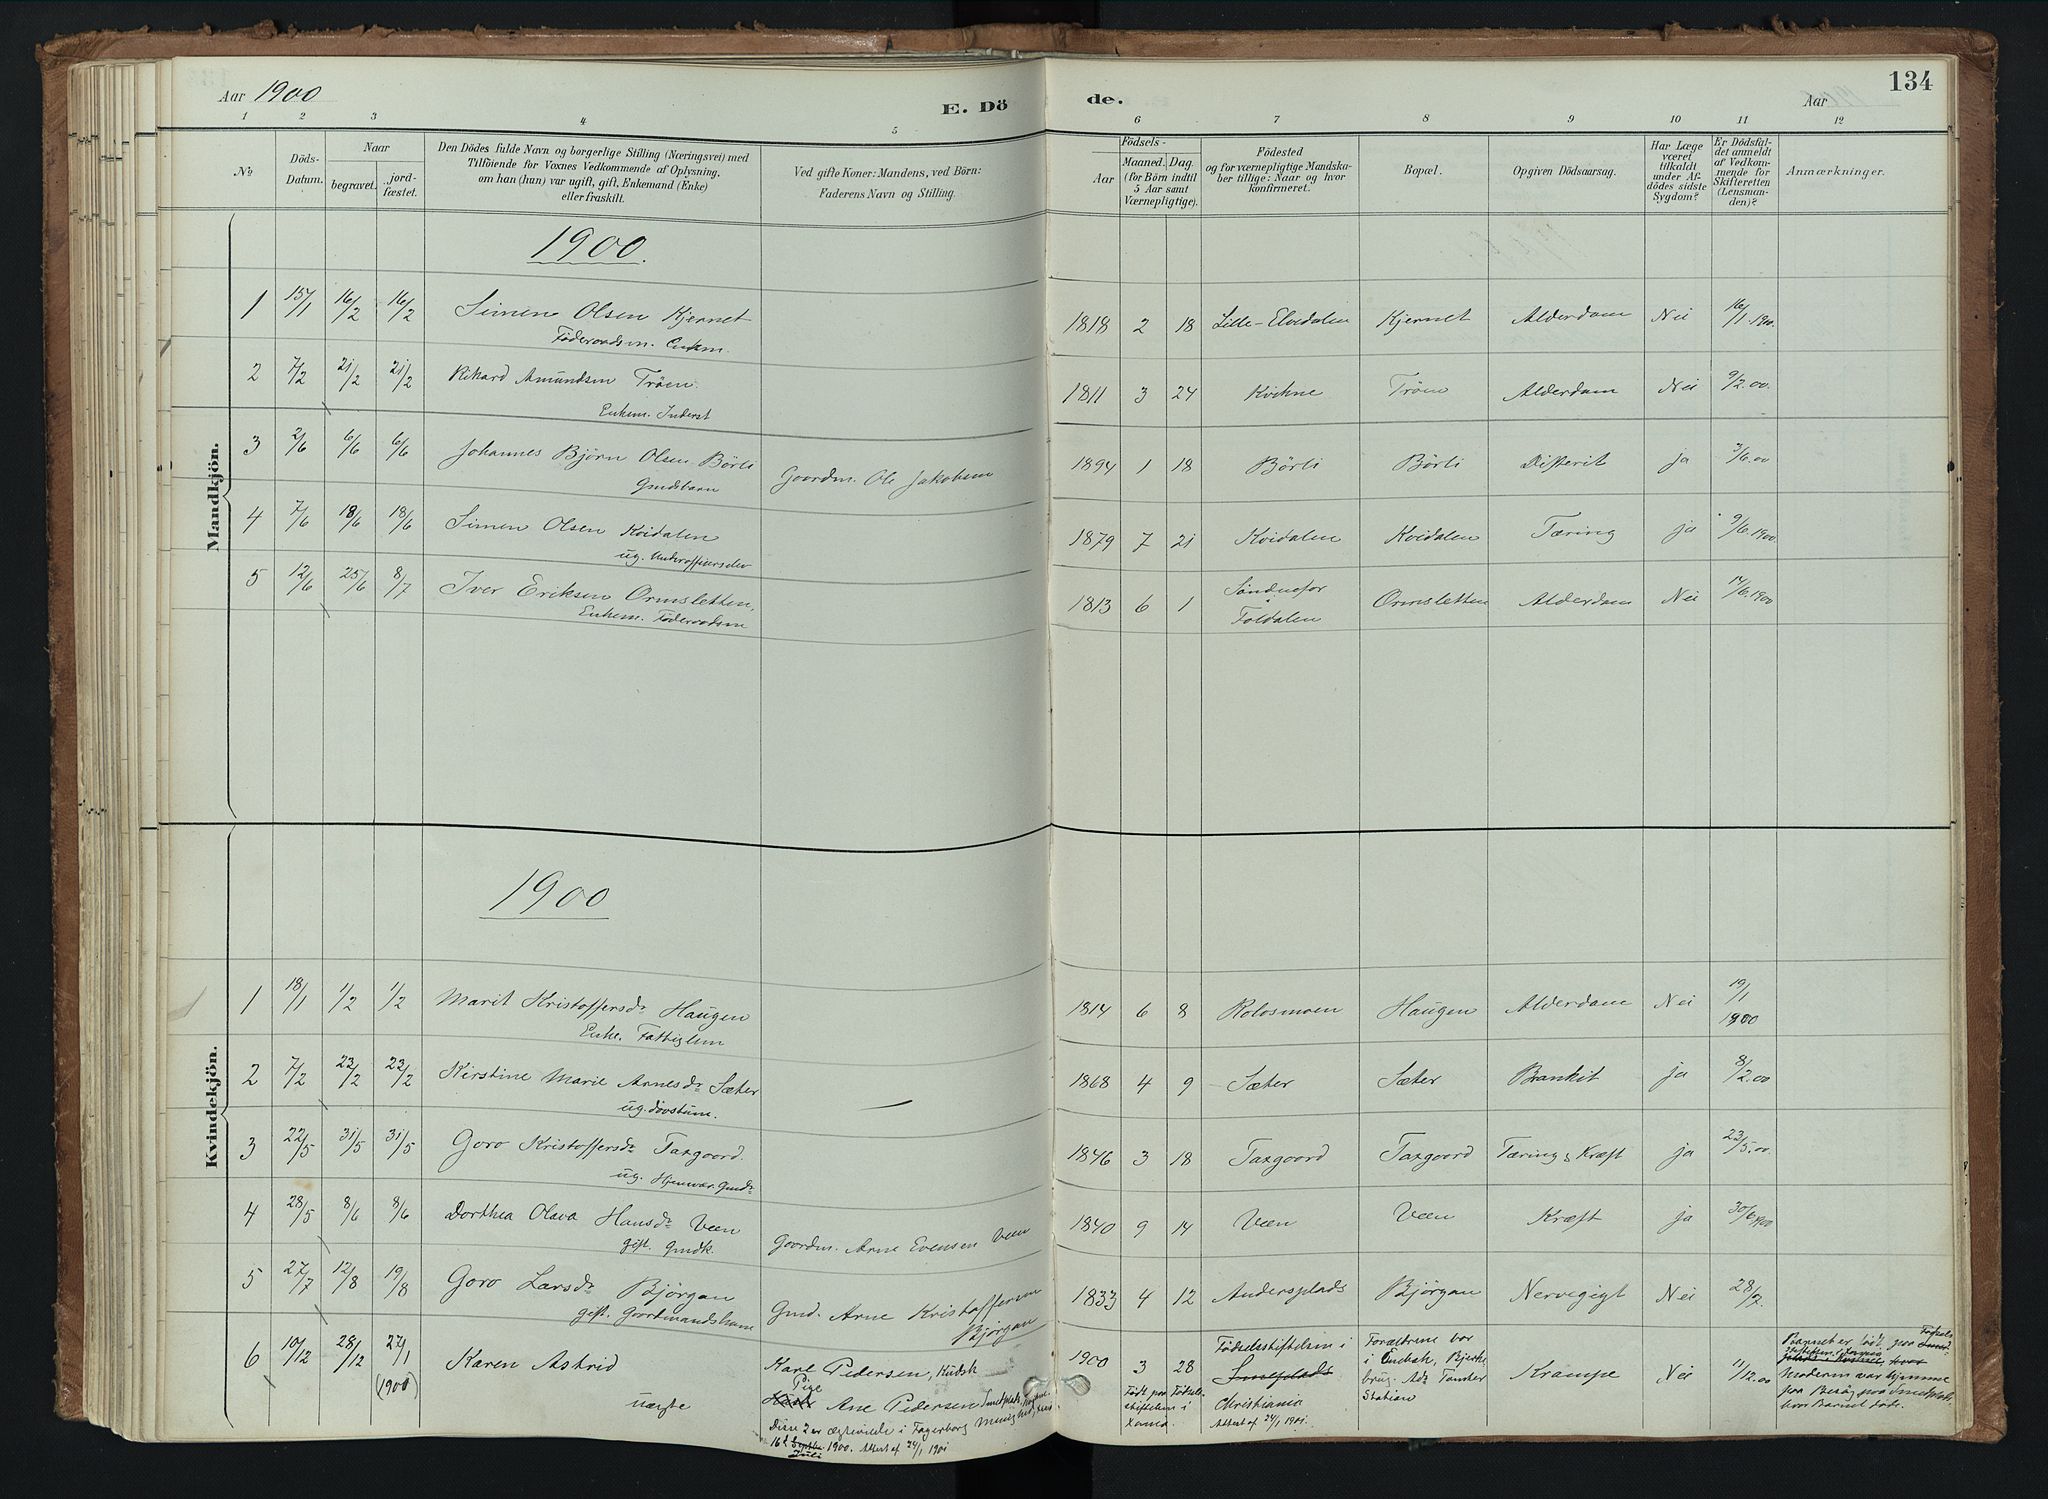 Aar 1900
E. Dö
de.
Aar
134
1 2 3 4 5 6 7 8 9 10 11 12
№
Döds-Datum.
Naar
begravet.
jord-fæstet.
Den Dödes fulde Navn og borgerlige Stilling (Næringsvei) med
Tilföiende for Voxnes Vedkommende af Oplysning,
om han (hun) var ugift, gift, Enkemand (Enke)
eller fraskilt.
Ved gifte Koner: Mandens, ved Börn:
Faderens Navn og Stilling.
Födsels-
Aar
Maaned. Dag.
(for Börn indtil
5 Aar samt
Værnepligtige).
Födested
og for værnepligtige Mandska-
ber tillige: Naar og hvor
konfirmeret.
Bopæl.
Opgiven Dödsaarsag.
Har Læge
været
tilkaldt
under Af-
dödes sidste
Sygdom?
Er Dödsfal-
det anmeldt
af Vedkom-
mende for
Skifteretten
(Lensman-
den)?
Anmærkninger.
Mandkjön.
1900.
1 15/1 16/2 16/2 Simen Olsen Kjernet 1818 2 18 Lille-Elvdalen Kjernet Alderdom Nei 16/1.1900.
Föderaadsm. Enkem.
2 7/2 21/2 21/2 Rikard Amundsen Tröen. 1811 3 24 Kvikne Tröen Alderdom Nei 9/2.00.
Enkem. Inderst
3 2/6 6/6 6/6 Johannes Björn Olsen Börli Gaardm. Ole Jakobsen 1894 1 18 Börli Börli Difterit ja 3/6.00
Gmdsbarn
4 7/6 18/6 18/6 Simen Olsen Kvidalen 1879 7 21 Kvidalen Kvidalen Tæring ja 9/6.1900
ug. Underofficerselev
5 12/6 25/6 8/7 Iver Eriksen Ormsletten, 1813 6 1 Söndre Ormsletten Alderdom Nei 14/6.1900
Enkem. Föderaadsm
Foldalen
Kvindekjön.
1900
1 18/1 1/2 1/2 Marit Kristoffersdr Haugen 1814 6 8 Kolosmoen Haugen Alderdom Nei 19/1
1900
Enke. Fattiglem
2 7/2 23/2 23/2 Kirstine Marie Arnesdr Sæter — 1868 4 9 Sæter Sæter Bronkit ja 8/2.00
ug. dövstum.
3 22/5 31/5 31/5 Goro Kristoffersdr Taxgaard. 1846 3 18 Taxgaard Taxgaard Tæring & Kræft ja 23/5.00.
ug. Hjemvær. Gmdr
4 28/5 8/6 8/6 Dorthea Olava Hansdr Veen Gaardm. Arne Evensen Veen 1840 9 14 Veen Veen Kræft ja 30/6.1900
gift. Gmdk.
5 27/7 12/8 19/8 Goro Larsdr Björgan Gmd. Arne Kristoffersen 1833 4 12 Andersplads Björgan Nervegigt Nei 28/7.
gift. Gaardmandskone
Björgan
6 10/12 28/12 27/1 Karen Astrid Karl Pedersen, Kudsk 1900 3 28 Födselsstiftelsen i
Smedplads
Christiania
Attest af 24/1 1901.
(1900)
uægte
Pige Ane Pedersen Smedplads,
Disse 2 er ægteviede i Fagerborg Menighed,
16de Septbr 1900. Attest af 24/1 1901
Juli
Födt paa Födsels-
stiftelsen i
Xania.
Forældrene bor
i Enebak, Bjerke
brug. Adr Tomter
Station
Krampe Nei 11/12.00
Barnet er födt paa Födsels
stiftelsen i Xania
Moderen var hjemme
paa Besög paa Smedplads,
hvor Barnet döde.